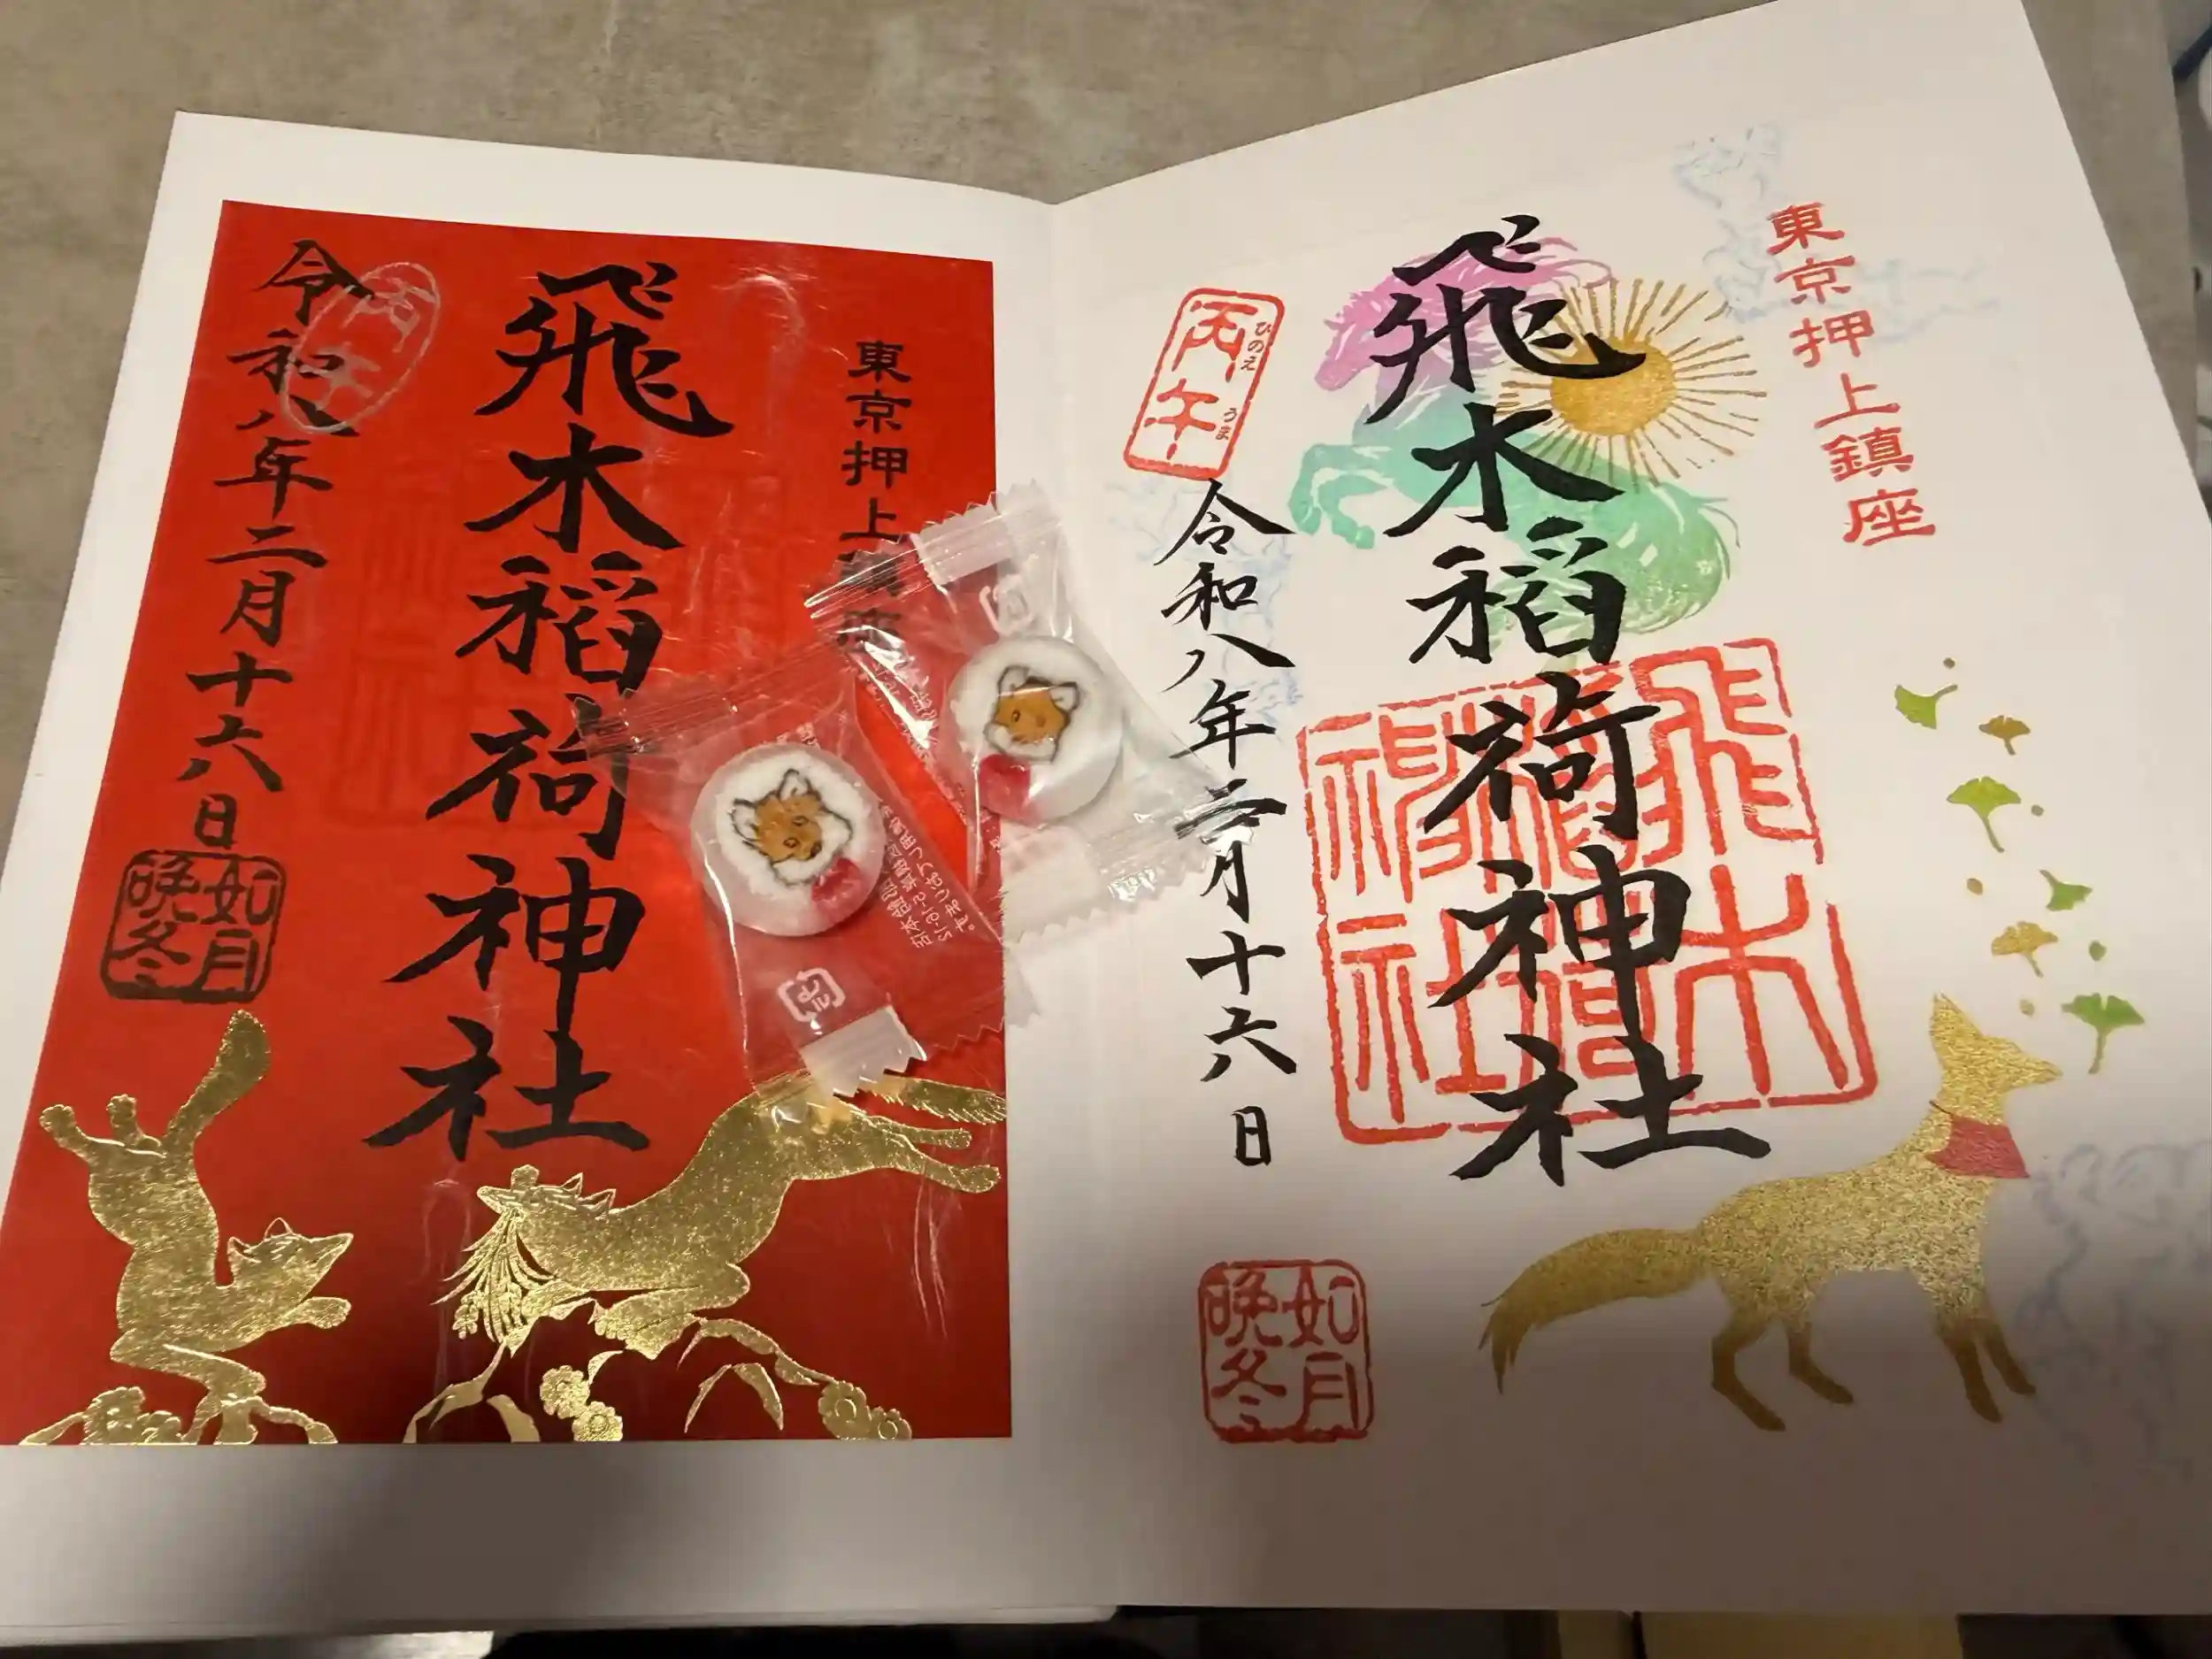 東京押上鎮座
飛木稲荷神社
丙午
ひのえ
うま
令和八年二月十六日
飛木稲荷神社
如月
晩冬
東京押上
飛木稲荷神社
丙午
令和八年二月十六日
如月
晩冬